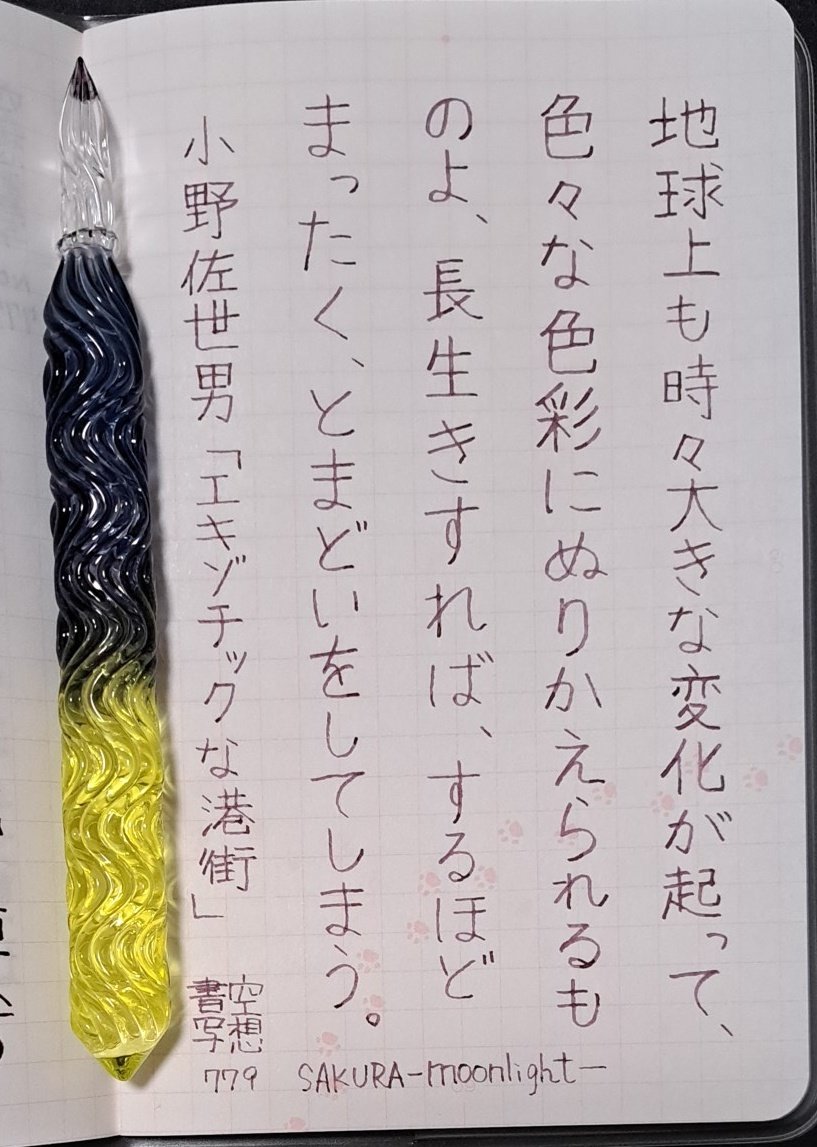 地球上も時々大きな変化が起って、
色々な色彩にぬりかえられるも
のよ、長生きすれば、するほど
まったく、とまどいをしてしまう。
小野佐世男「エキゾチックな港街」
空想
書写
779
SAKURA-moonlight-